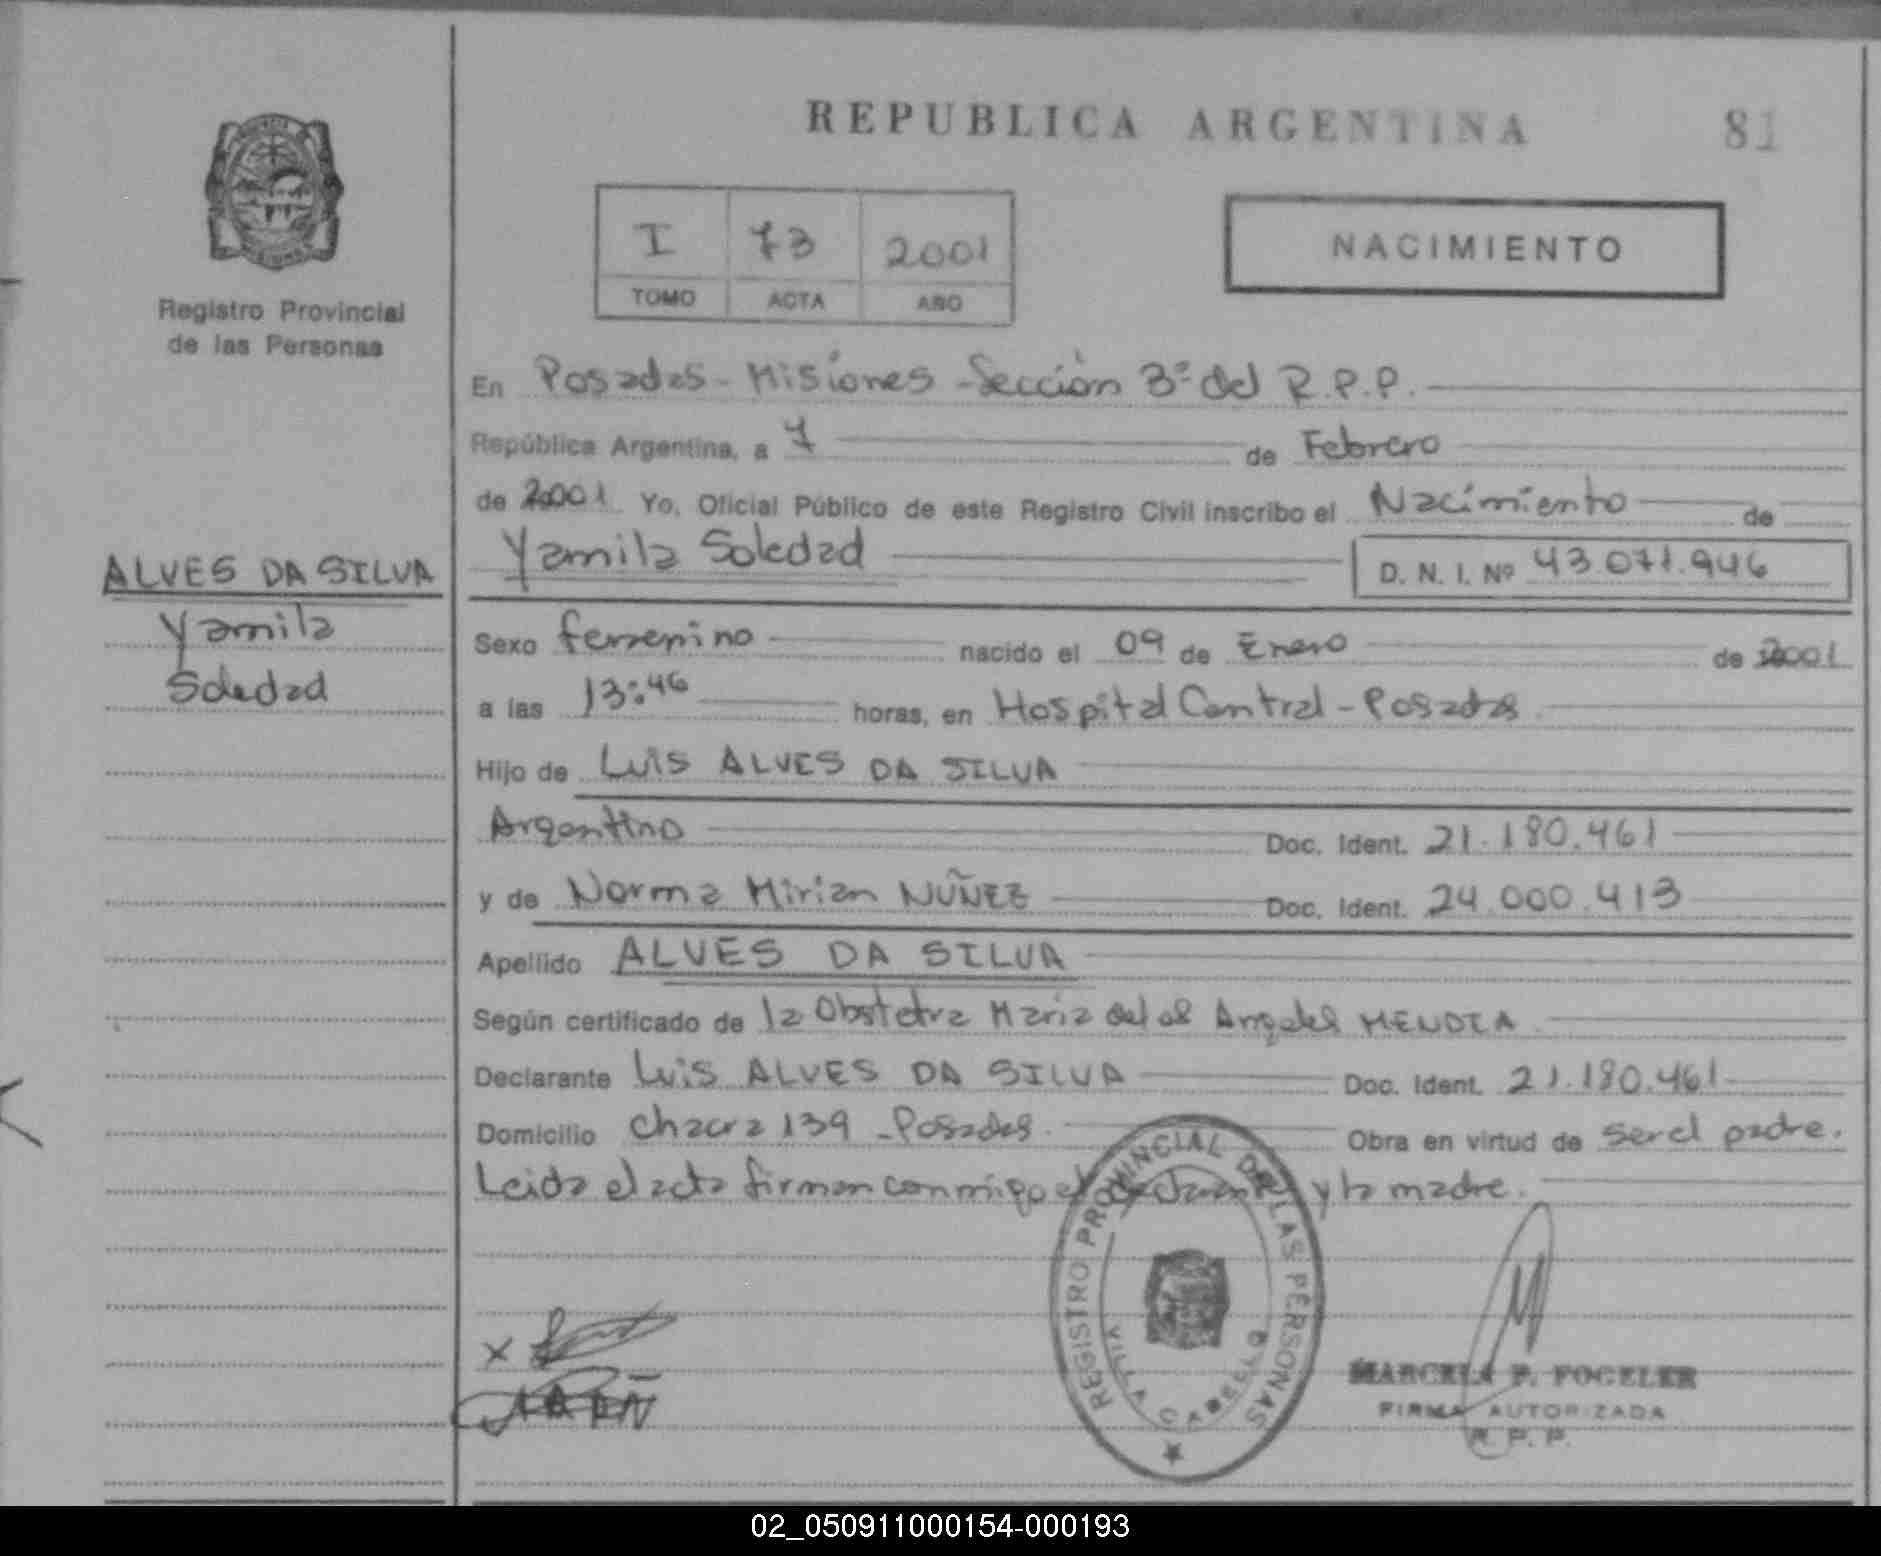 REPUBLICA ARGENTINA 81
Registro Provincial
de las Personas
I 73 2001
TOMO ACTA AÑO
NACIMIENTO
En Posadas - Misiones - Sección 3º del R.P.P.
República Argentina, a 7 de Febrero
de 2001 Yo, Oficial Público de este Registro Civil inscribo el Nacimiento de
Yamila Soledad D. N. I. Nº 43.071.946
ALVES DA SILVA
Yamila
Soledad
Sexo femenino nacido el 09 de Enero de 2001
a las 13:46 horas, en Hospital Central - Posadas
Hijo de Luis ALVES DA SILVA
Argentino Doc. Ident. 21.180.461
y de Norma Mirian NUÑEZ Doc. Ident. 24.000.413
Apellido ALVES DA SILVA
Según certificado de la Obstetra Maria de los Angeles MENDEZ
Declarante Luis ALVES DA SILVA Doc. Ident. 21.180.461
Domicilio Chacra 139 - Posadas. Obra en virtud de ser el padre.
Leida el acta firman conmigo el declarante y la madre.
REGISTRO PROVINCIAL DE LAS PERSONAS
VILLA CABELLO
MARCELA F. FOGELER
FIRMA AUTORIZADA
R. P. P.
02_050911000154-000193